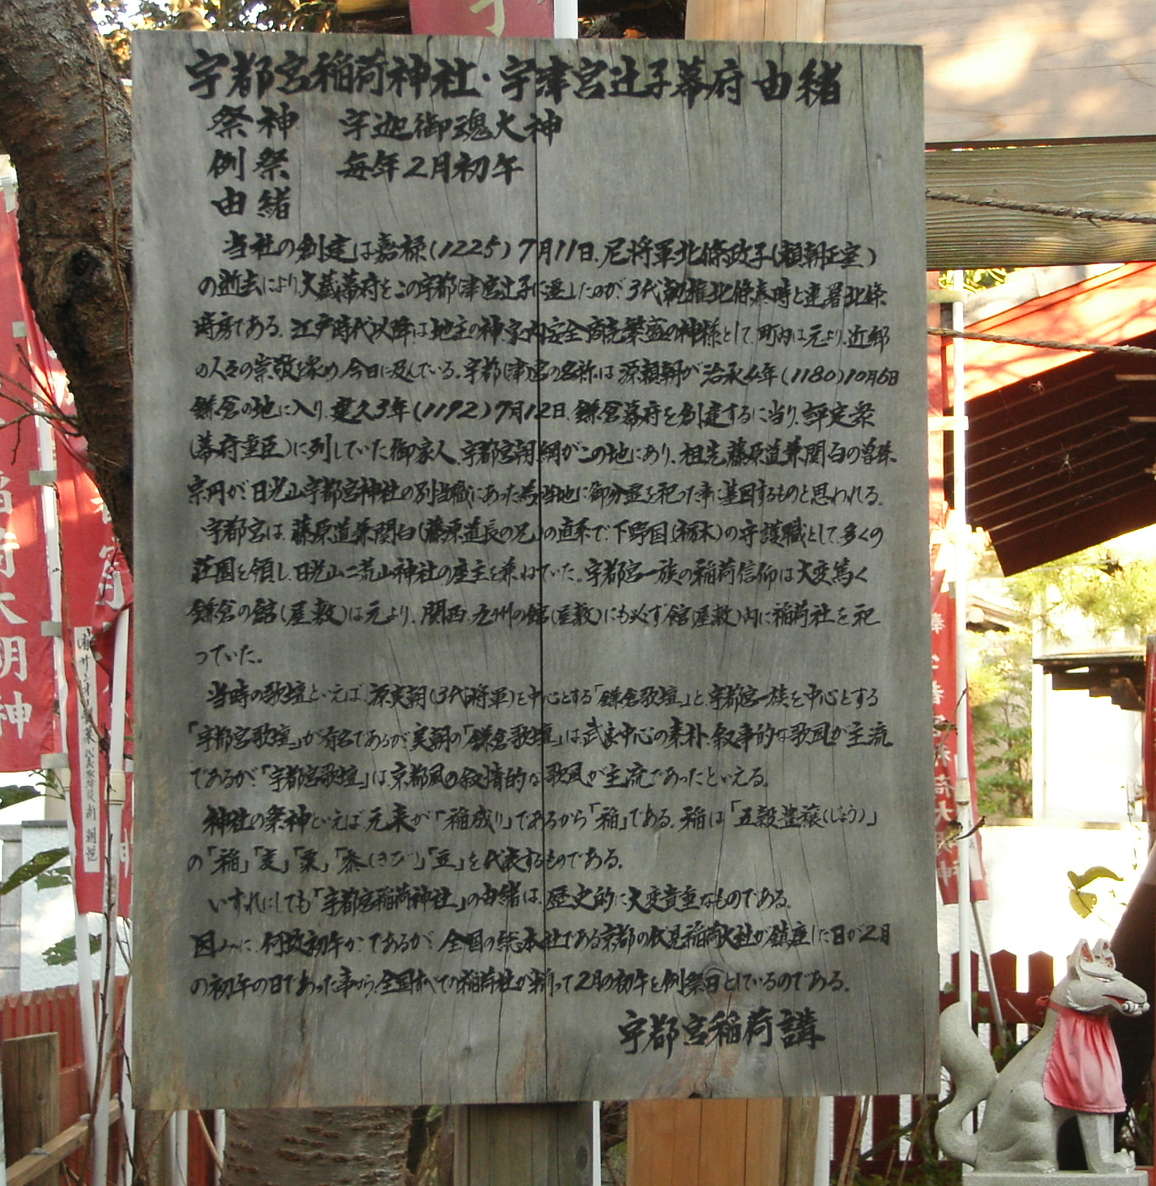 宇都宮稲荷神社・宇津宮辻子幕府由緒
祭神 宇迦御魂大神
例祭 毎年2月初午
由緒
当社の創建は嘉禄(1225)7月11日、尼将軍北條政子(頼朝正室)
の逝去により大蔵幕府をこの宇都(津)宮辻子に遷したのが、3代執権北條泰時と連署北條
時房である。江戸時代以降は地主の神、家内安全、商売繁盛の神様として、町内は元より、近郷
の人々の崇敬を求め、今日に及んでいる。宇都(津)宮の名称は源頼朝が治承4年(1180)10月6日
鎌倉の地に入り、建久3年(1192)7月12日、鎌倉幕府を創建するに当り、評定衆
(幕府重臣)に列していた御家人、宇都宮朝綱がこの地にあり、祖先藤原道兼関白の曽孫
宗円が、日光山宇都宮神社の別当職にあった為、当地に御分霊を祀った事に基因するものと思われる。
宇都宮は、藤原道兼関白(藤原道長の兄)の直系で、下野国(栃木)の守護職として、多くの
荘園を領し、日光山二荒山神社の座主を兼ねていた。宇都宮一族の稲荷信仰は大変篤く
鎌倉の館(屋敷)は元より、関西、九州の館(屋敷)にも必ず館(屋敷)内に稲荷社を祀
っていた。
当時の歌壇といえば、源実朝(3代将軍)を中心とする「鎌倉歌壇」と、宇都宮一族を中心とする
「宇都宮歌壇」が有名であるが、実朝の「鎌倉歌壇」は、武家中心の素朴、叙事的な歌風が主流
であるが、「宇都宮歌壇」は、京都風の叙情的な歌風が主流であったといえる。
神社の祭神といえば、元来が「稲成り」であるから「稲」である。稲は「五穀豊穣(じょう)」
の「稲」「麦」「粟」「黍(きび)」「豆」を代表するものである。
いずれにしても「宇都宮稲荷神社」の由緒は、歴史的に大変貴重なものである。
因みに、何故初午かであるが、全国の総本社である京都の伏見稲荷大社が鎮座した日が2月
の初午の日であった事から、全国すべての稲荷社が揃って2月の初午を例祭日としているのである。
宇都宮稲荷講
荷大明神